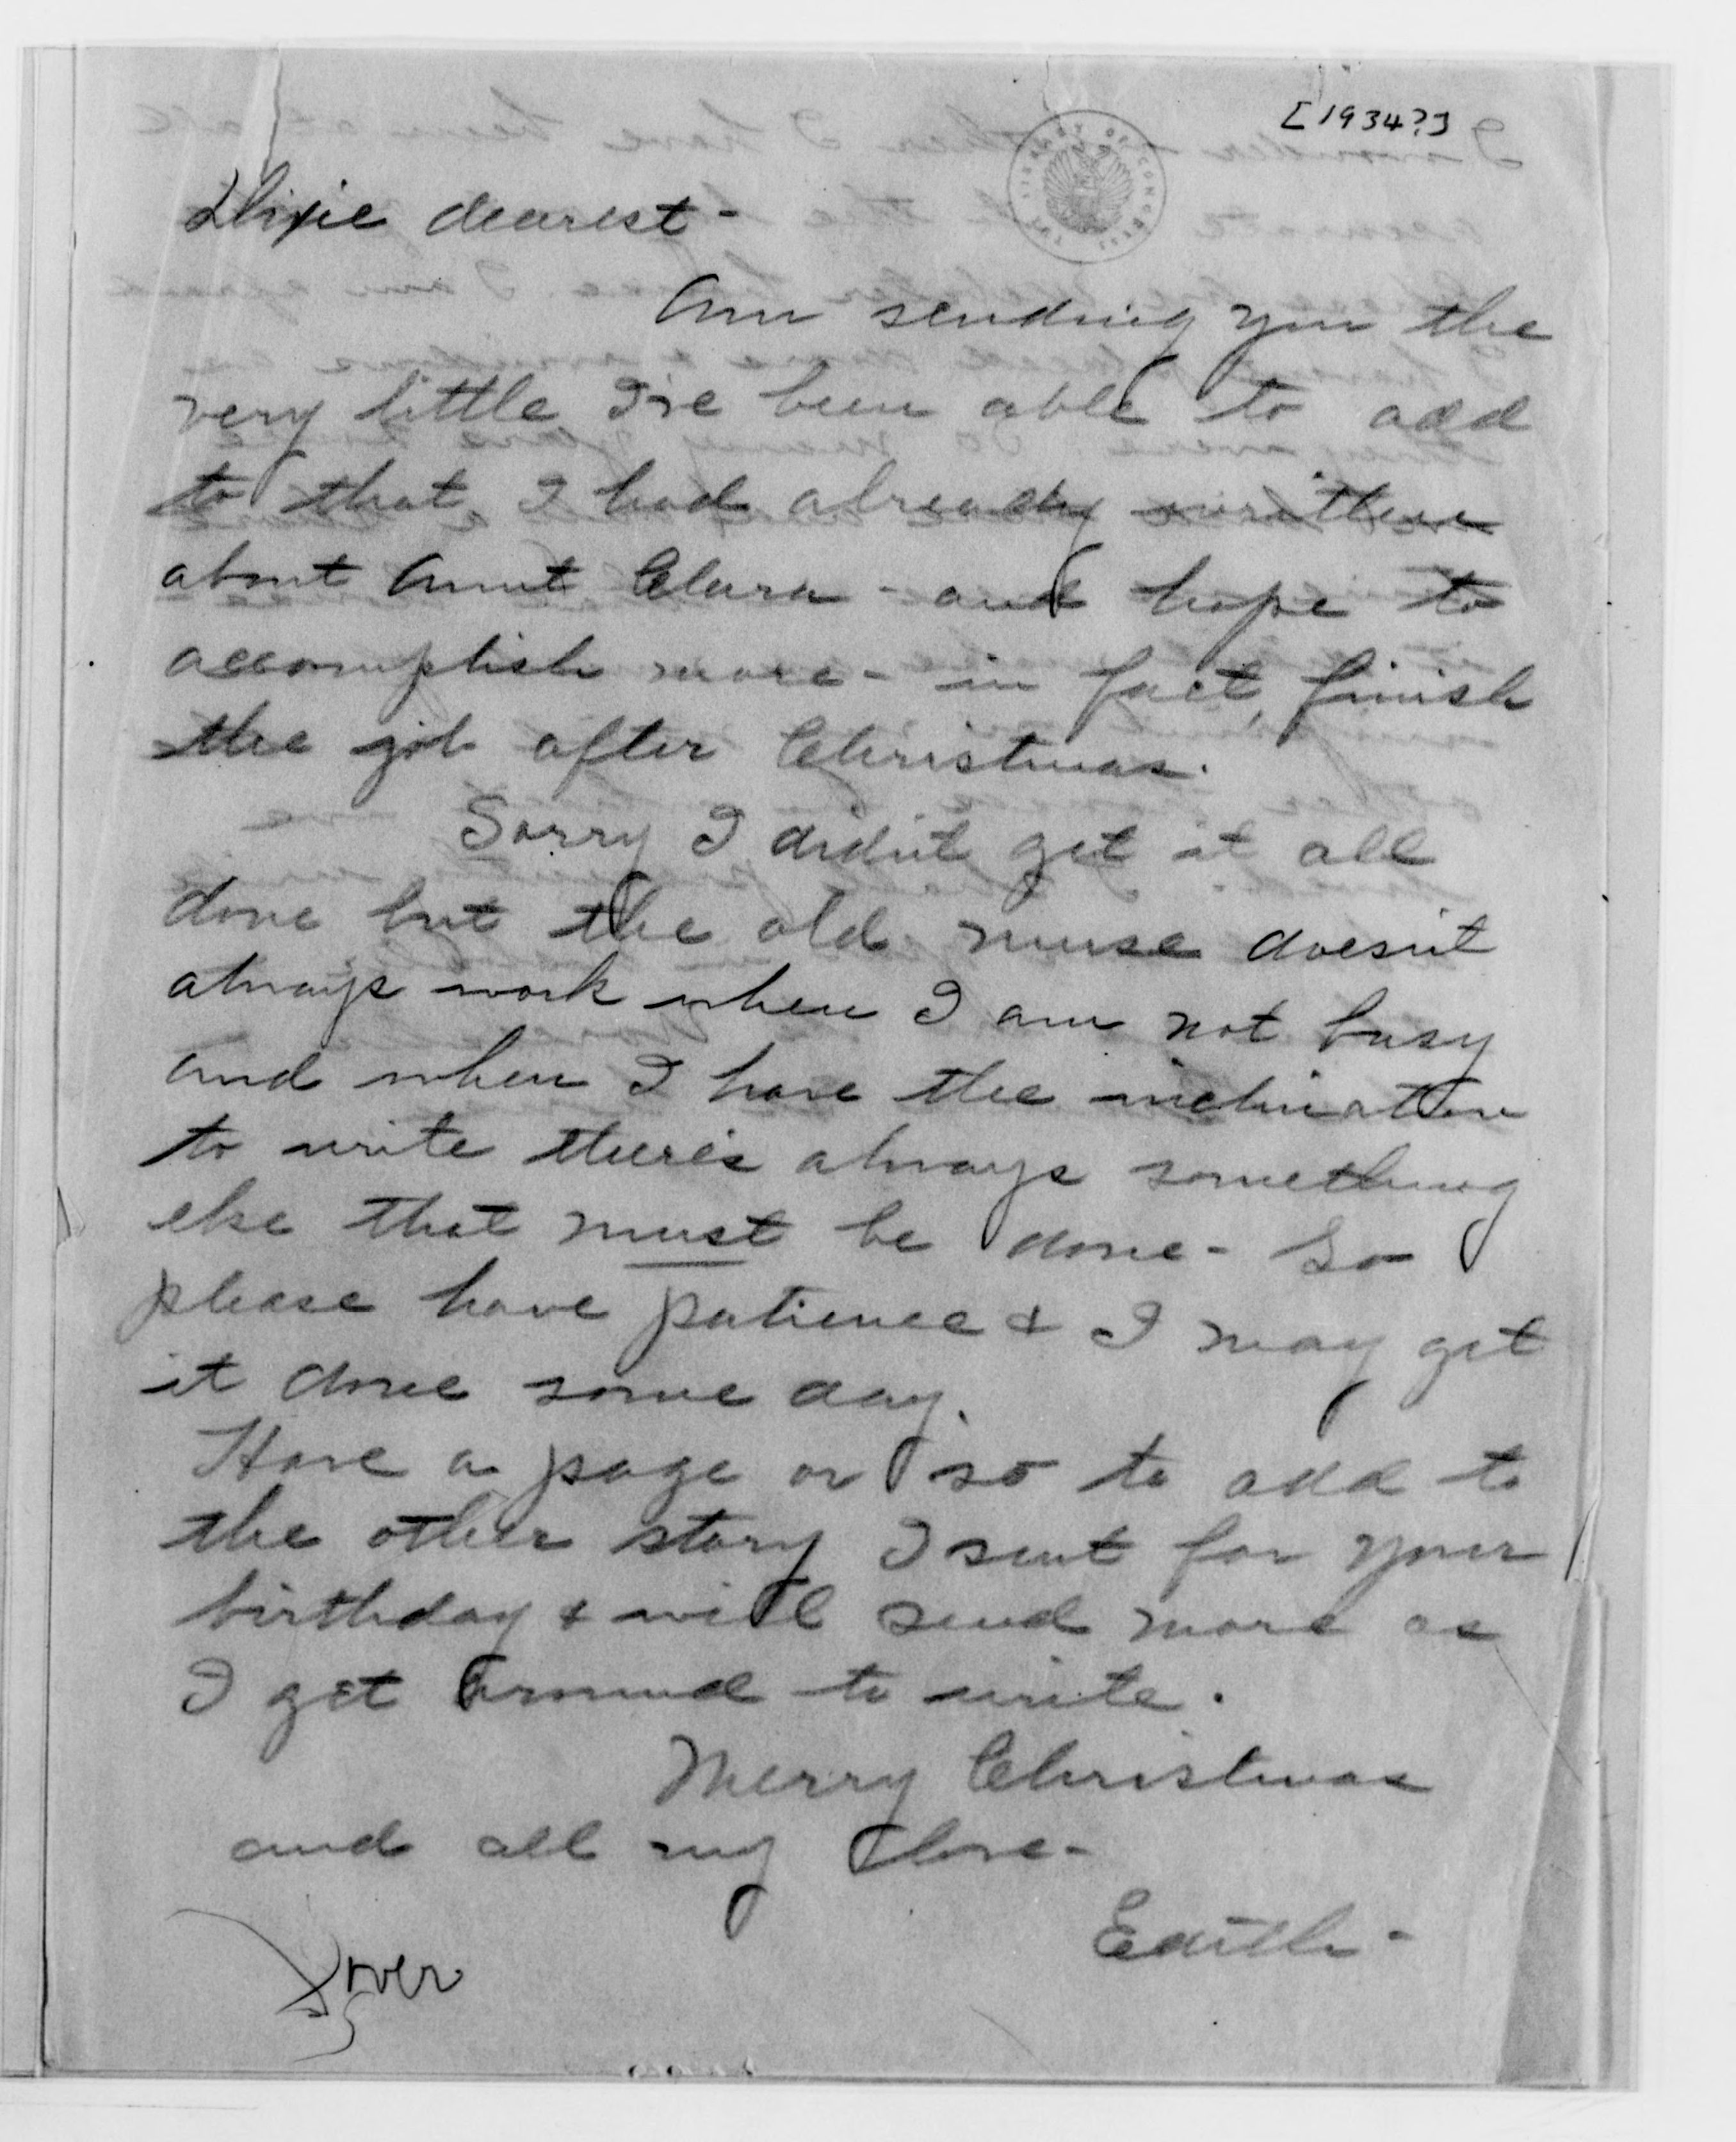 [1934?]
THE LIBRARY OF CONGRESS
Dixie dearest -
Am sending you the
very little I've been able to add
to that I had already written
about Aunt Clara - and hope to
accomplish more - in fact, finish
the job after Christmas.
Sorry I didn't get it all
done but the old muse doesn't
always work when I am not busy
and when I have the inclination
to write there's always something
else that must be done - So
please have patience & I may get
it done some day.
Have a page or so to add to
the other story I sent for your
birthday & will send more as
I get around to write.
Merry Christmas
and all my love -
Edith -
over